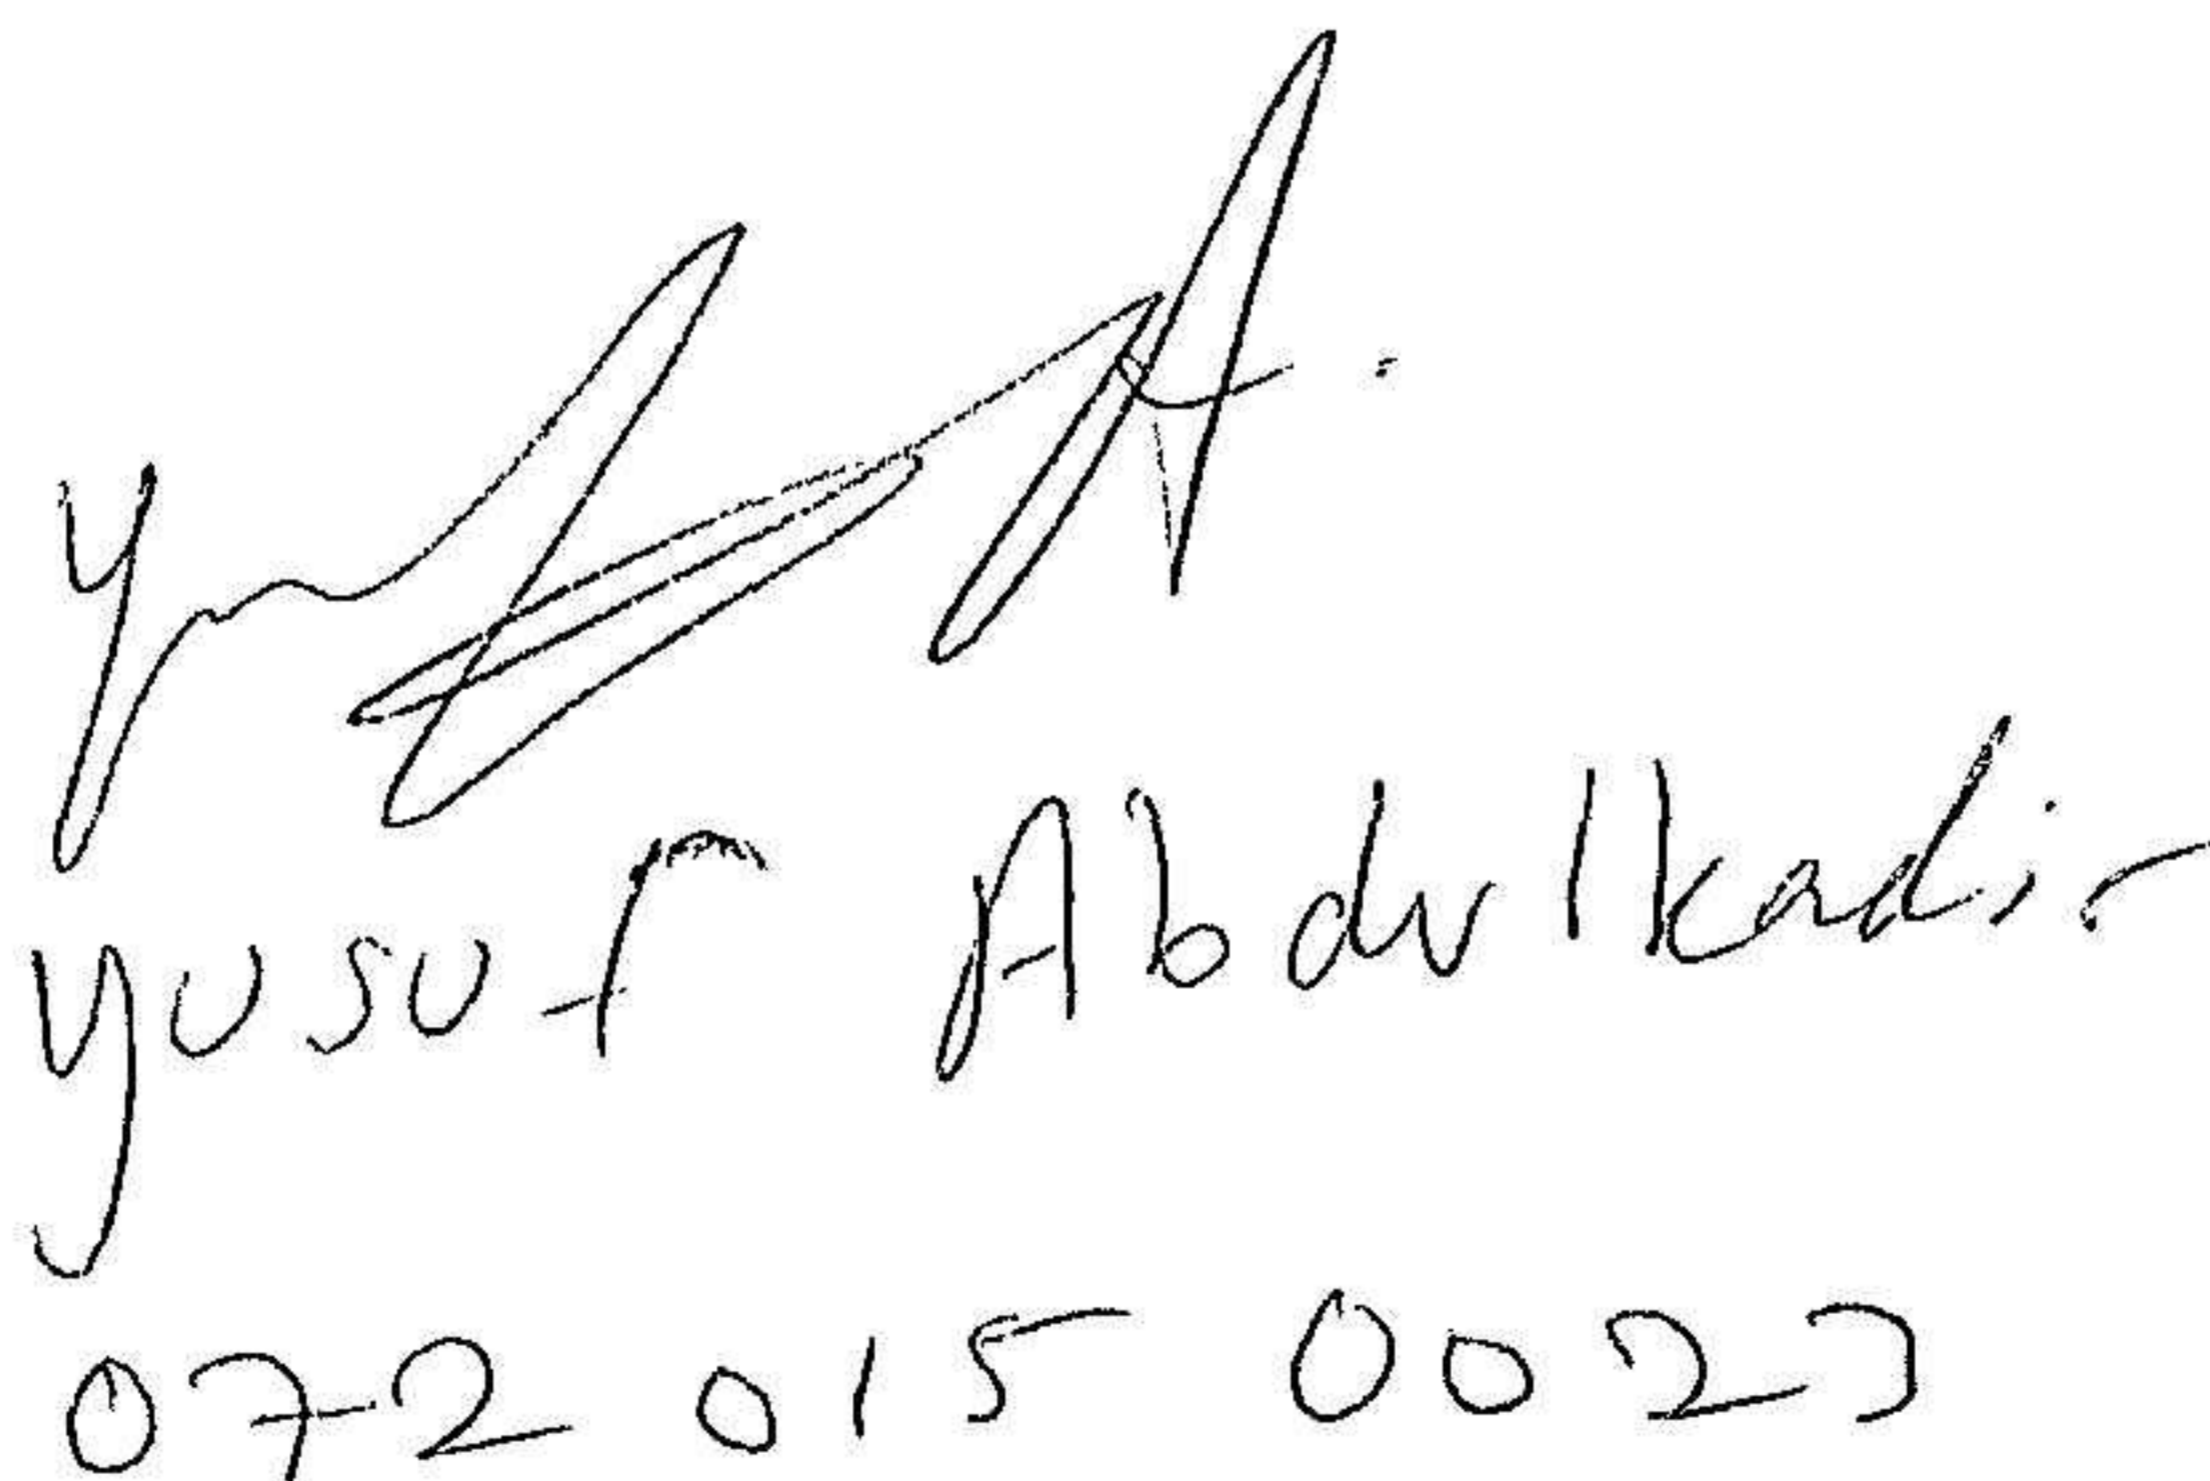 Yusuf Abdulkadir
072 015 0023